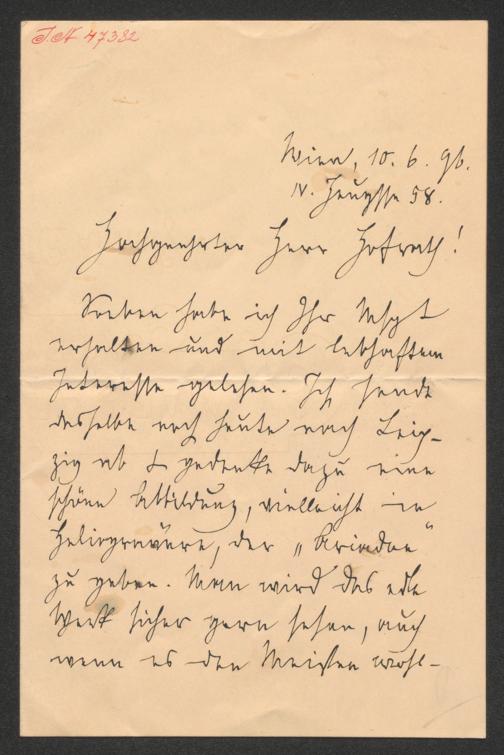 I.N 47382
Wien, 10. 6. 96.
IV. Heugasse 58.
Hochgeehrter Herr Hofrath!
Soeben habe ich Ihr Mspt
erhalten und mit lebhaftem
Interesse gelesen. Ich sende
dasselbe noch heute nach Leip-
zig ab & gedenke dazu eine
schöne Abbildung, vielleicht in
Heliogravüre, der „Ariadne“
zu geben. Man wird das edle
Werk sicher gern sehen, auch
wenn es den Meisten wohl-